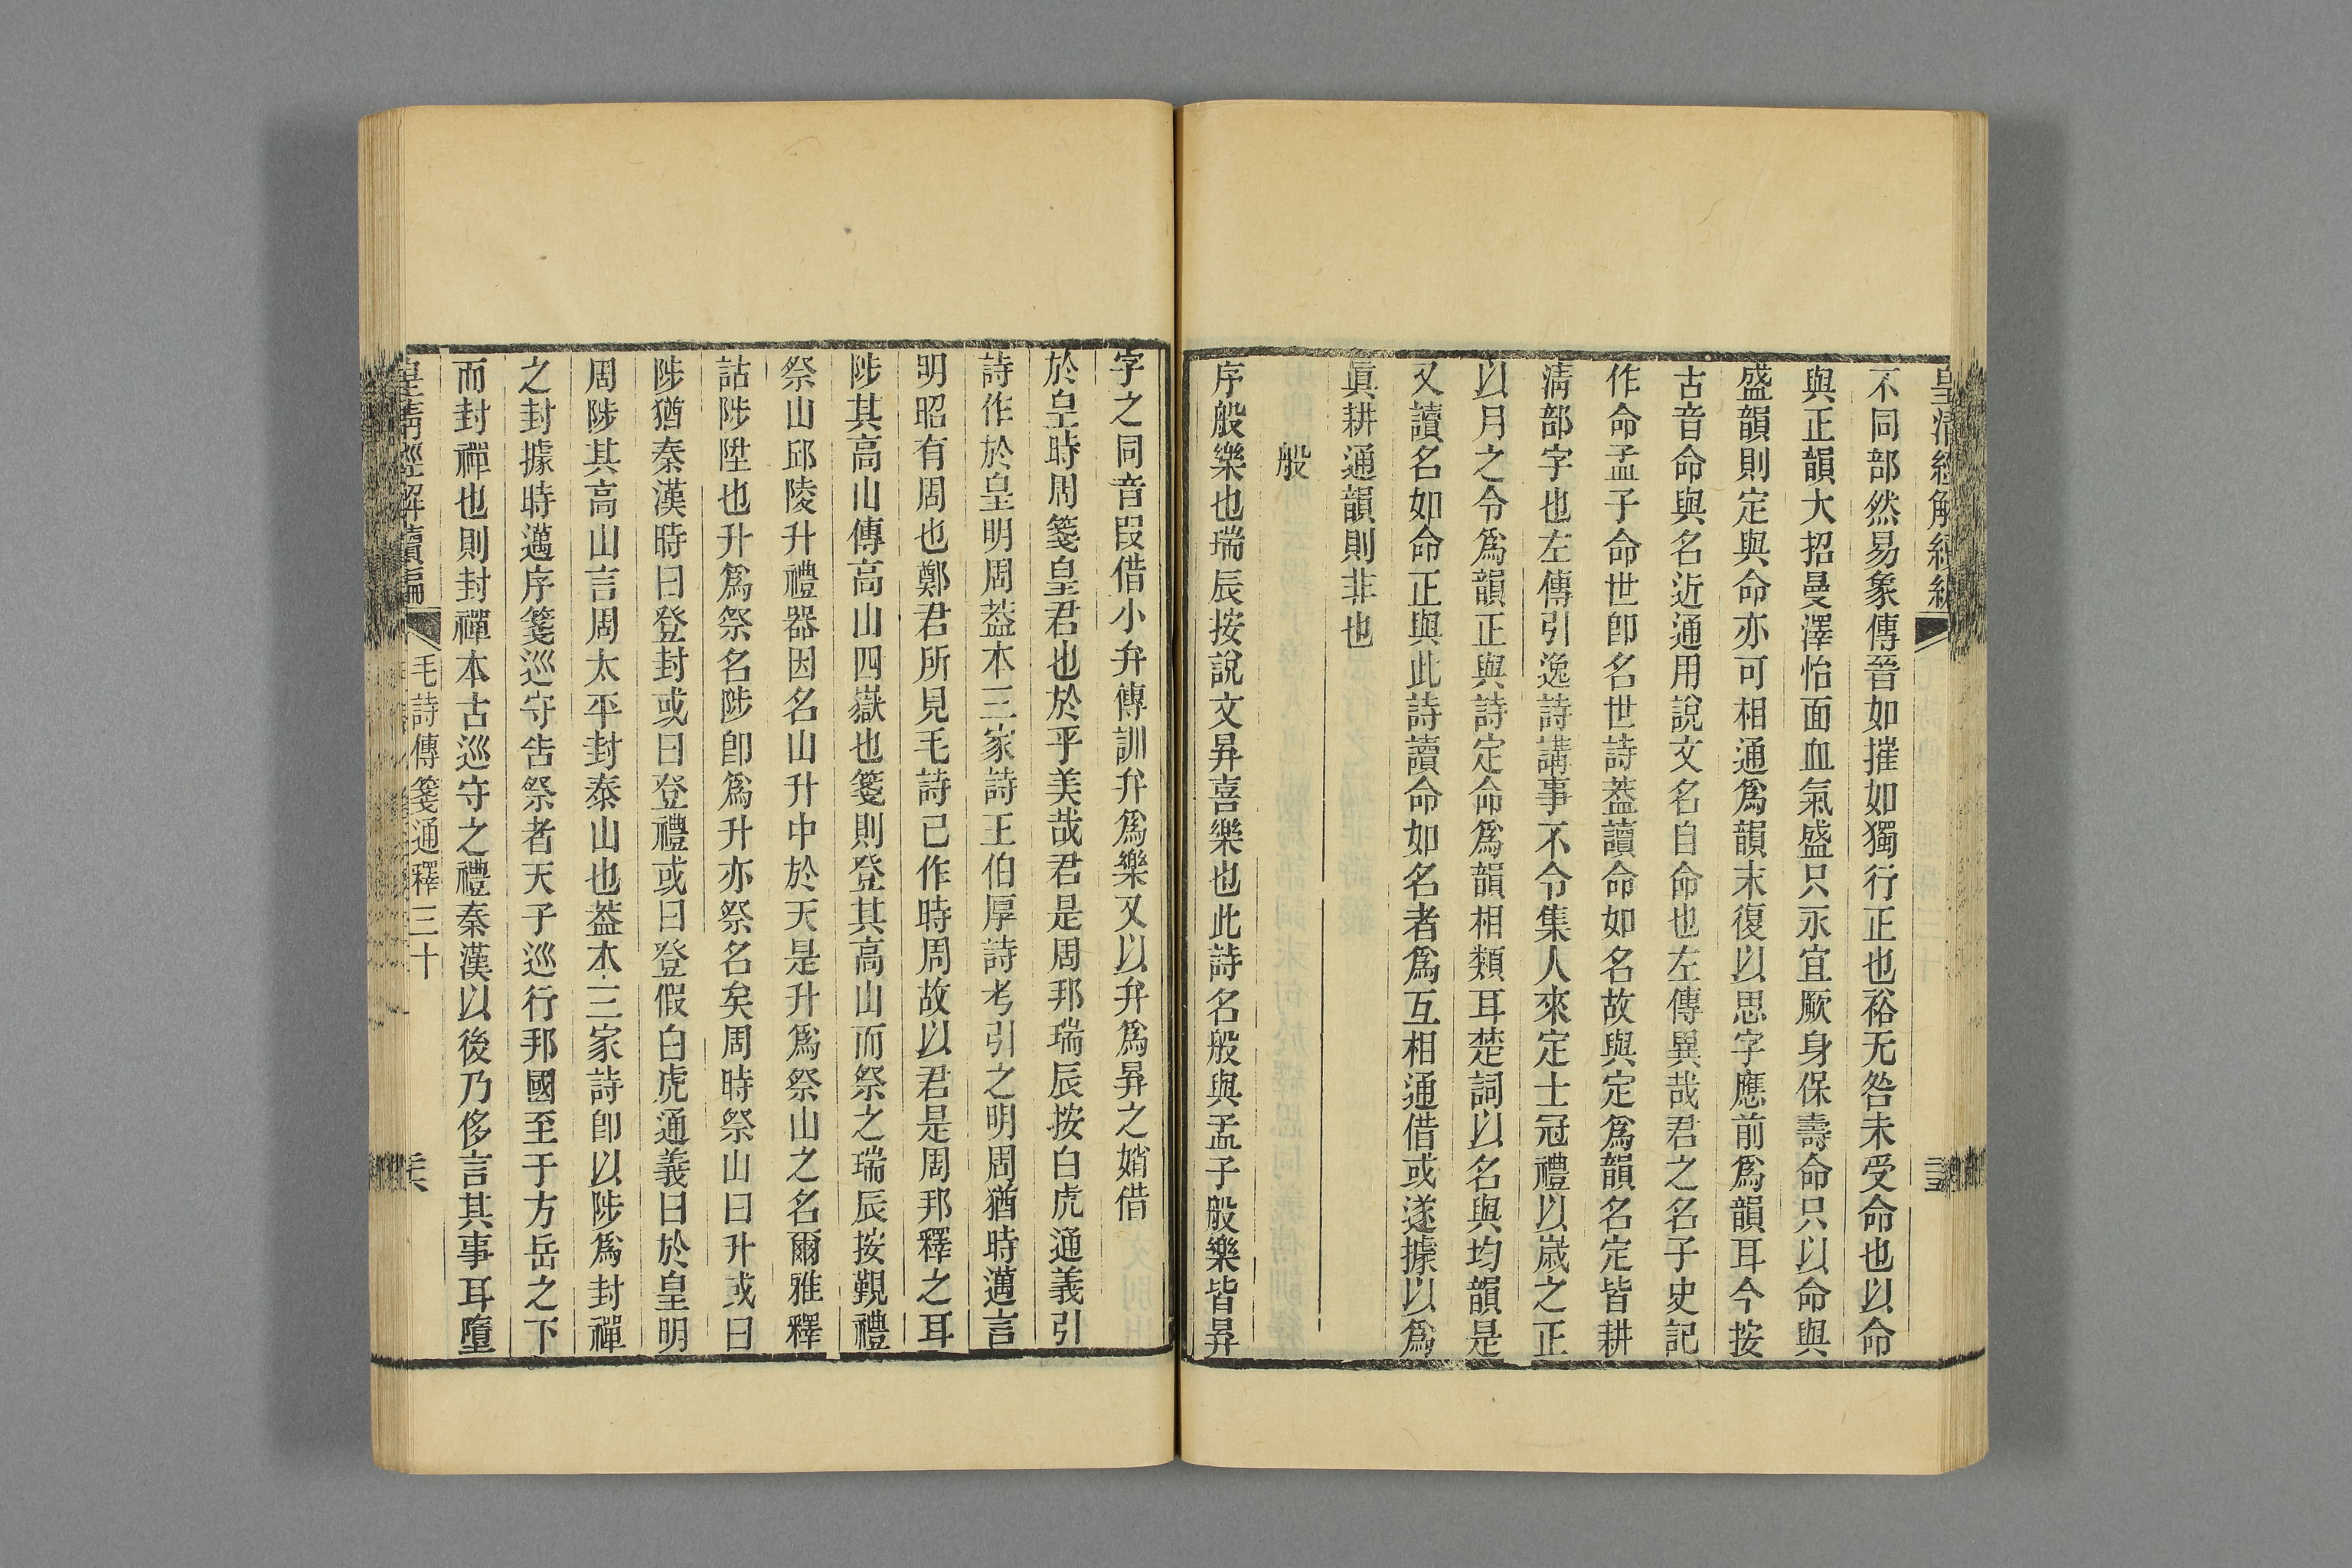 皇清經解續編
不同部然易象傳晉如摧如獨行正也裕无咎未受命也以命
與正韻大招曼澤怡面血氣盛只永宜厥身保壽命只以命與
盛韻則定與命亦可相通爲韻末復以思字應前爲韻耳今按
古音命與名近通用說文名自命也左傳異哉君之名子史記
作命孟子命世卽名世詩葢讀命如名故與定爲韻名定皆耕
淸部字也左傳引逸詩講事不令集人來定士冠禮以歲之正
以月之令爲韻正與詩定命爲韻相類耳楚詞以名與均韻是
又讀名如命正與此詩讀命如名者爲互相通借或遂據以爲
眞耕通韻則非也
般
序般樂也瑞辰按說文昪喜樂也此詩名般與孟子般樂皆昪
字之同音叚借小弁傳訓弁爲樂又以弁爲昪之媘借
於皇時周箋皇君也於乎美哉君是周邦瑞辰按白虎通義引
詩作於皇明周葢本三家詩王伯厚詩考引之明周猶時邁言
明昭有周也鄭君所見毛詩已作時周故以君是周邦釋之耳
陟其高山傳高山四嶽也箋則登其高山而祭之瑞辰按覲禮
祭山邱陵升禮器因名山升中於天是升爲祭山之名爾雅釋
詁陟陞也升爲祭名陟卽爲升亦祭名矣周時祭山曰升或曰
陟猶秦漢時曰登封或曰登禮或曰登假白虎通義曰於皇明
周陟其高山言周太平封泰山也葢本三家詩卽以陟爲封禪
之封據時邁序箋巡守告祭者天子巡行邦國至于方岳之下
而封禪也則封禪本古巡守之禮秦漢以後乃侈言其事耳墮
皇淸經解續編
毛詩傳箋通釋三十